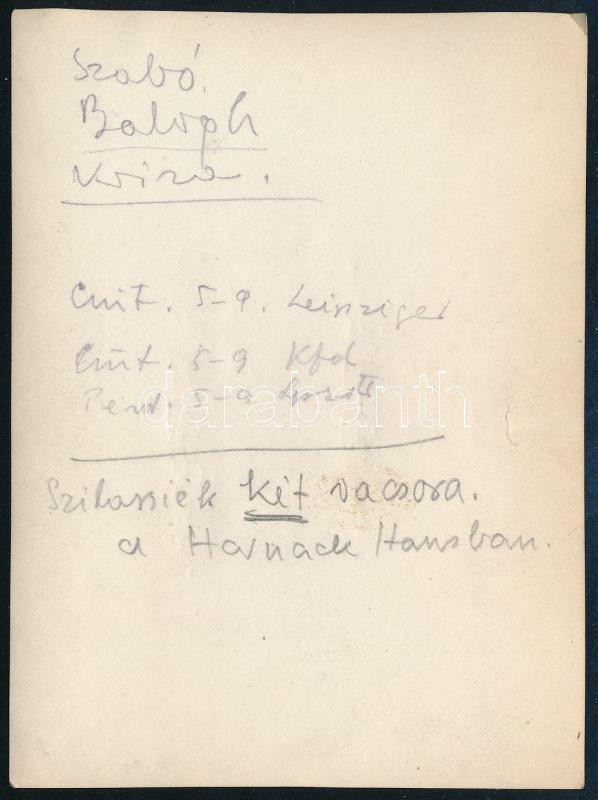 Szabó.
Balogh
Kriza.
Csüt. 5-9. Leipziger
Csüt. 5-9 Kfd
Pént. 5-9
darabanth
Szilassiék két vacsora.
a Harnack Hausban.